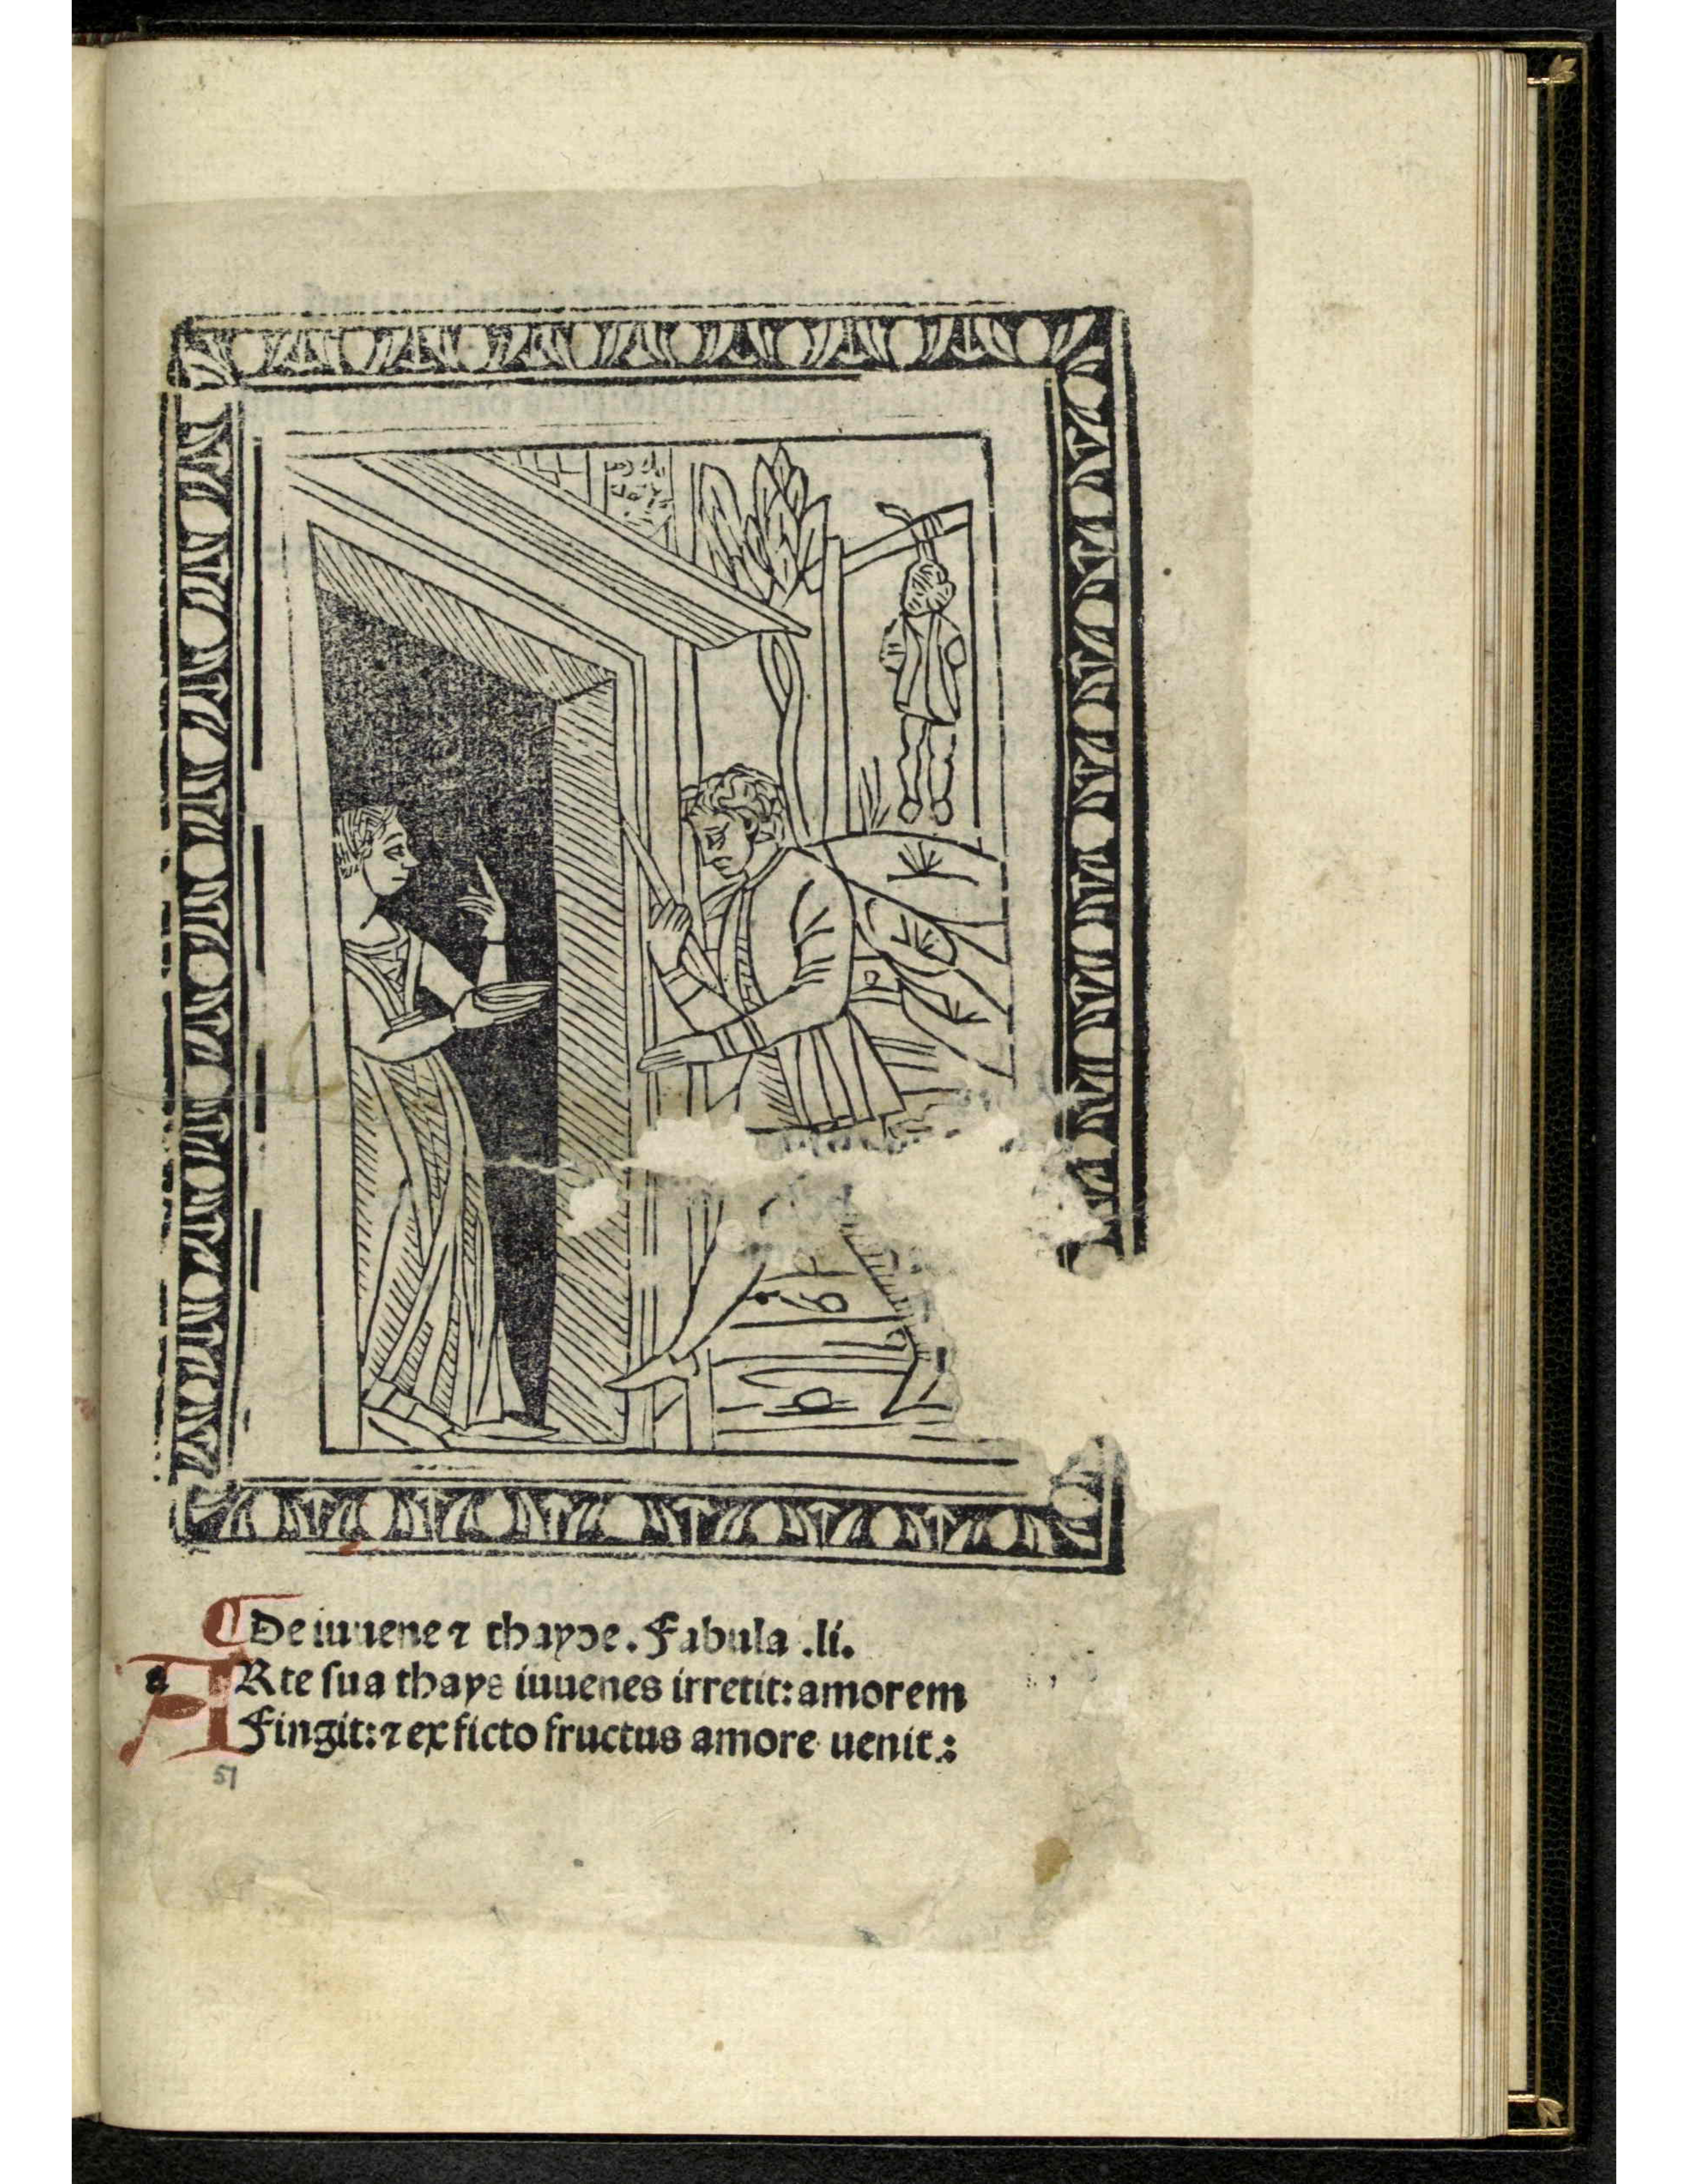 De iuuene ⁊ thayde. Fabula .li.
a ARte sua thays iuuenes irretit: amorem
Fingit: ⁊ ex ficto fructus amore uenit.:
51